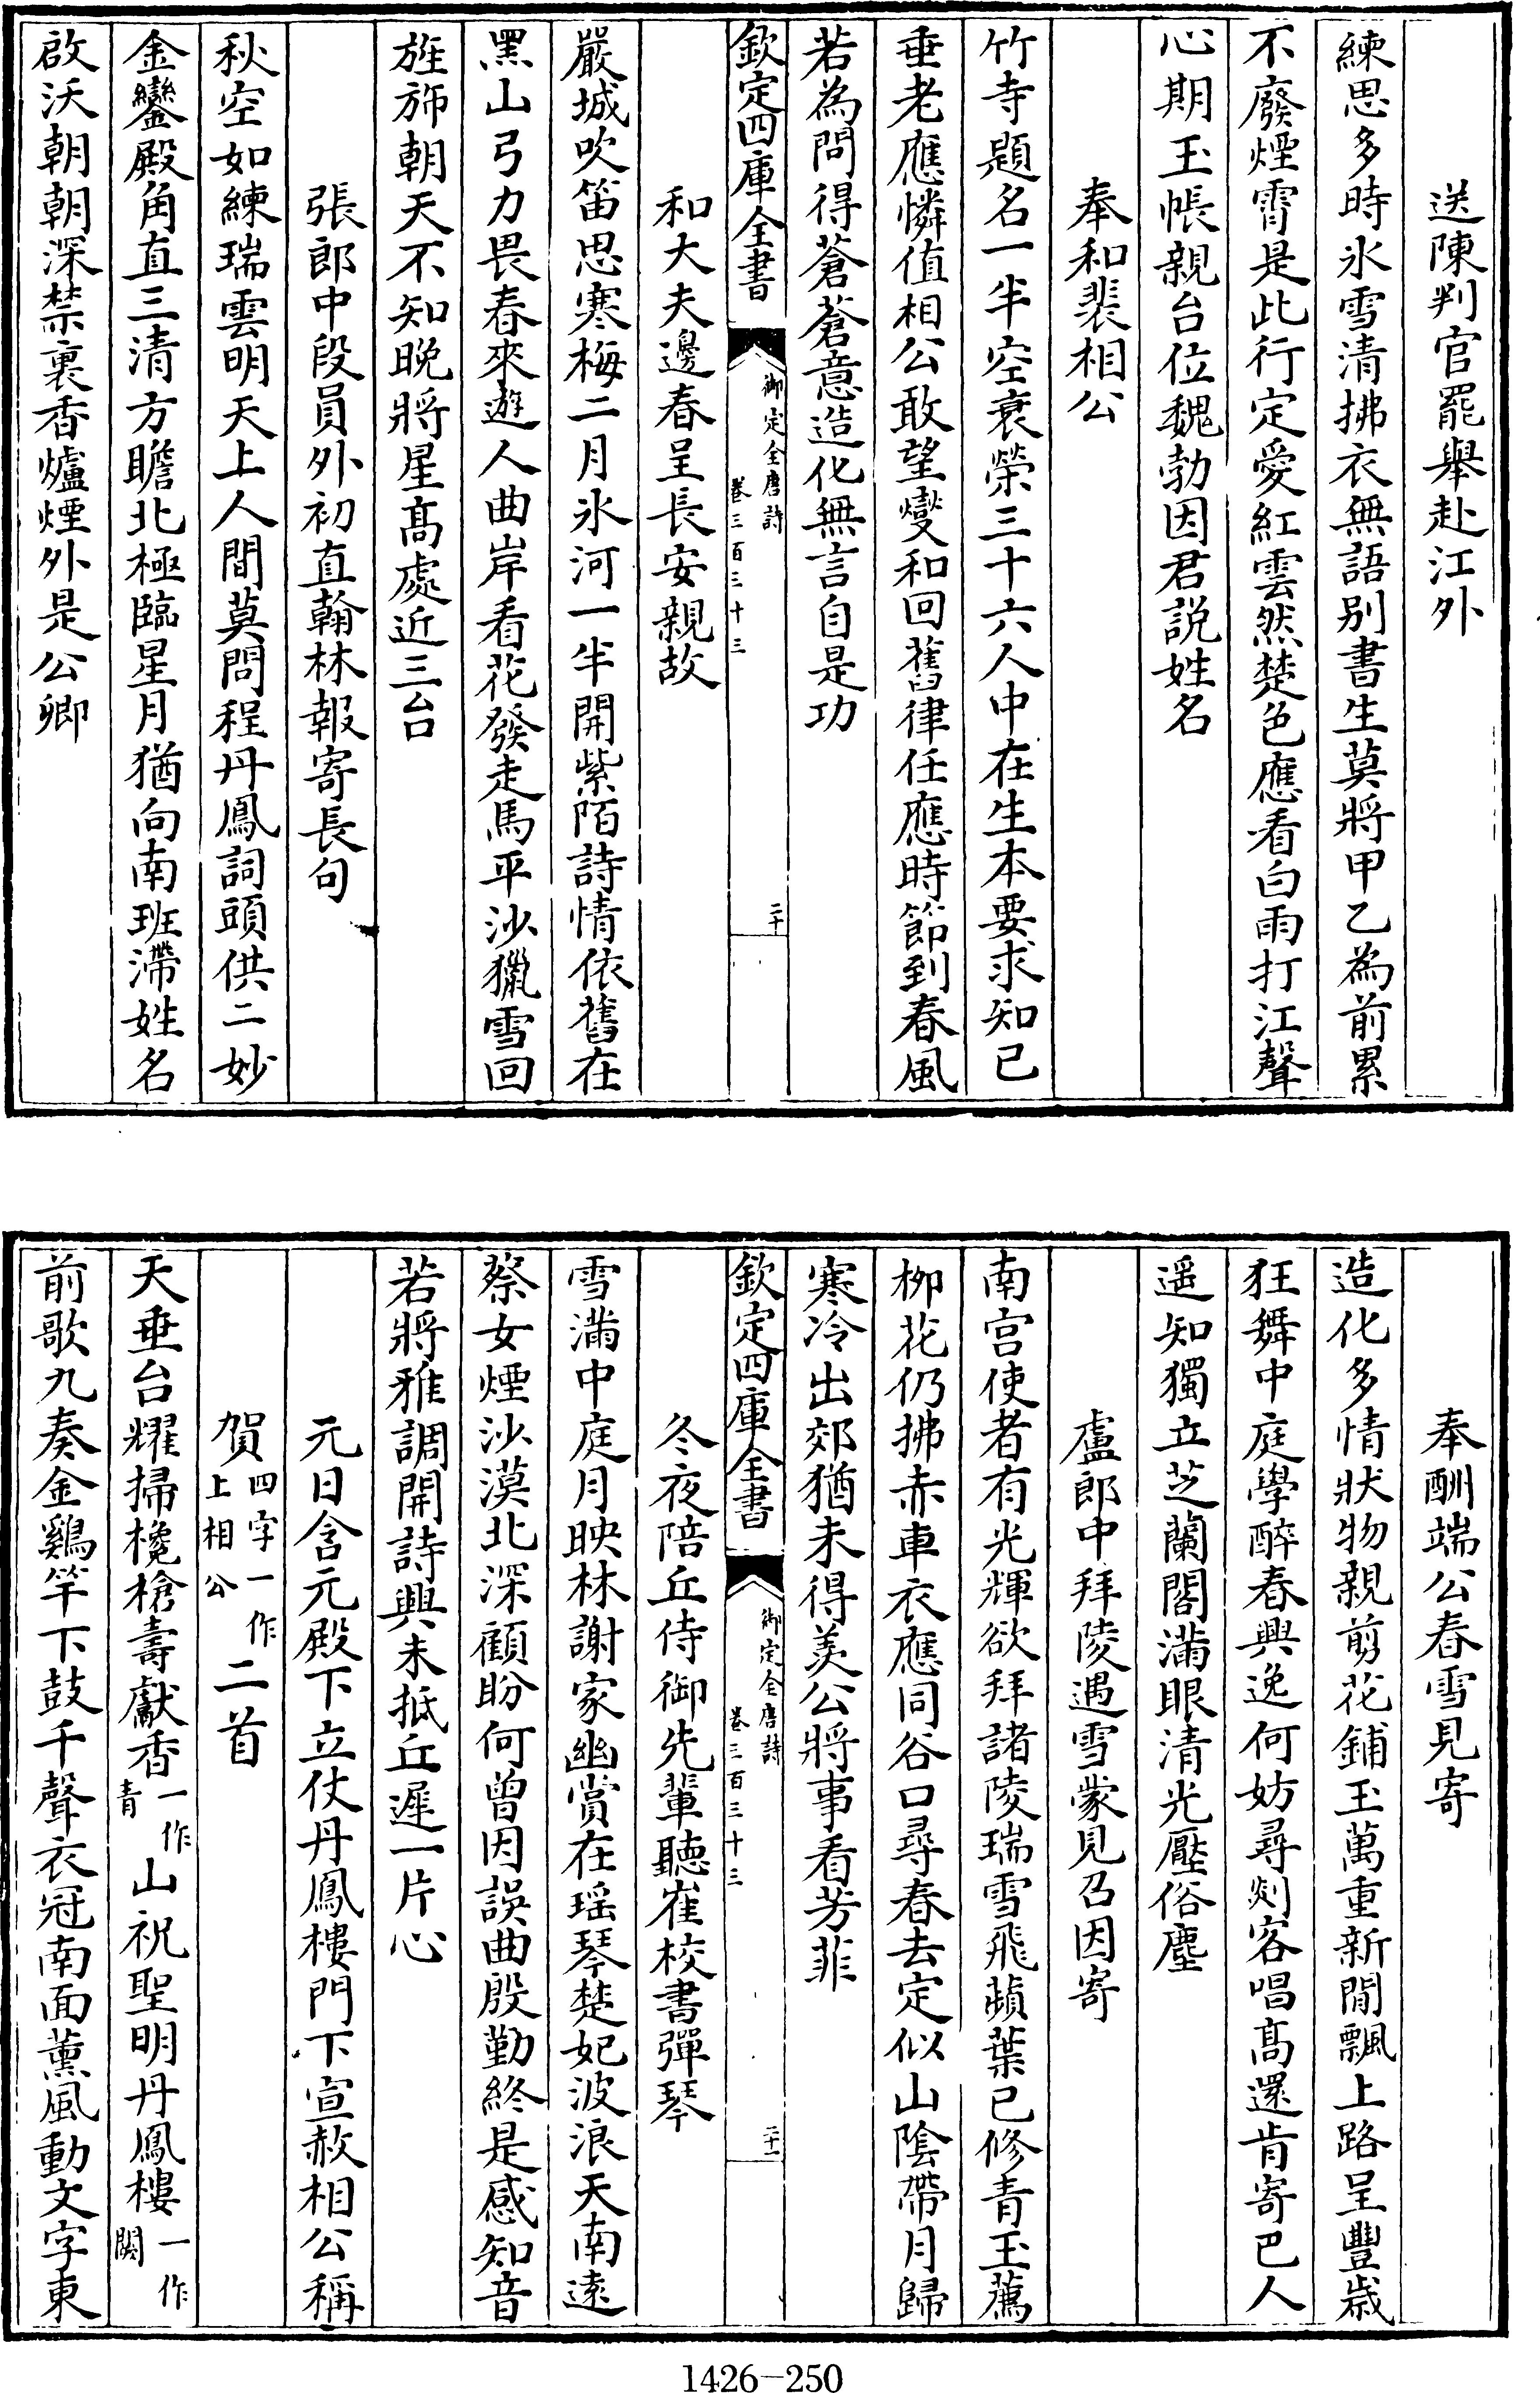 送陳判官罷舉赴江外
練思多時氷雪清拂衣無語別書生莫將甲乙為前累
不廢煙霄是此行定愛紅雲然楚色應看白雨打江聲
心期玉帳親台位魏勃因君説姓名
奉和裴相公
竹寺題名一半空衰榮三十六人中在生本要求知已
垂老應憐值相公敢望燮和回舊律任應時節到春風
若為問得蒼蒼意造化無言自是功
欽定四庫全書
御定全唐詩
卷三百三十三
二十
和大夫邊春呈長安親故
嚴城吹笛思寒梅二月氷河一半開紫陌詩情依舊在
黑山弓力畏春來遊人曲岸看花發走馬平沙獵雪回
旌斾朝天不知晚將星髙處近三台
張郎中段員外初直翰林報寄長句
秋空如練瑞雲明天上人間莫問程丹鳳詞頭供二妙
金鑾殿角直三清方瞻北極臨星月猶向南班滯姓名
啟沃朝朝深禁裏香爐煙外是公卿
奉酬端公春雪見寄
造化多情狀物親剪花鋪玉萬重新閒飄上路呈豐歲
狂舞中庭學醉春興逸何妨尋剡客唱髙還肯寄巴人
遥知獨立芝蘭閣滿眼清光壓俗塵
盧郎中拜陵遇雪蒙見召因寄
南宫使者有光輝欲拜諸陵瑞雪飛蘋葉已修青玉薦
柳花仍拂赤車衣應同谷口尋春去定似山隂帶月歸
寒冷出郊猶未得羨公將事看芳菲
欽定四庫全書
御定全唐詩
卷三百三十三
二十一
冬夜陪丘侍御先輩聽崔校書彈琴
雪滿中庭月映林謝家幽賞在瑶琴楚妃波浪天南逺
蔡女煙沙漠北深顧盼何曾因誤曲殷勤終是感知音
若將雅調開詩興未抵丘遲一片心
元日含元殿下立仗丹鳳樓門下宣赦相公稱
賀四字一作上相公二首
天垂台耀掃欃槍壽獻香一作青山祝聖明丹鳳樓一作闕
前歌九奏金鷄竿下鼓千聲衣冠南面薰風動文字東
1426－250